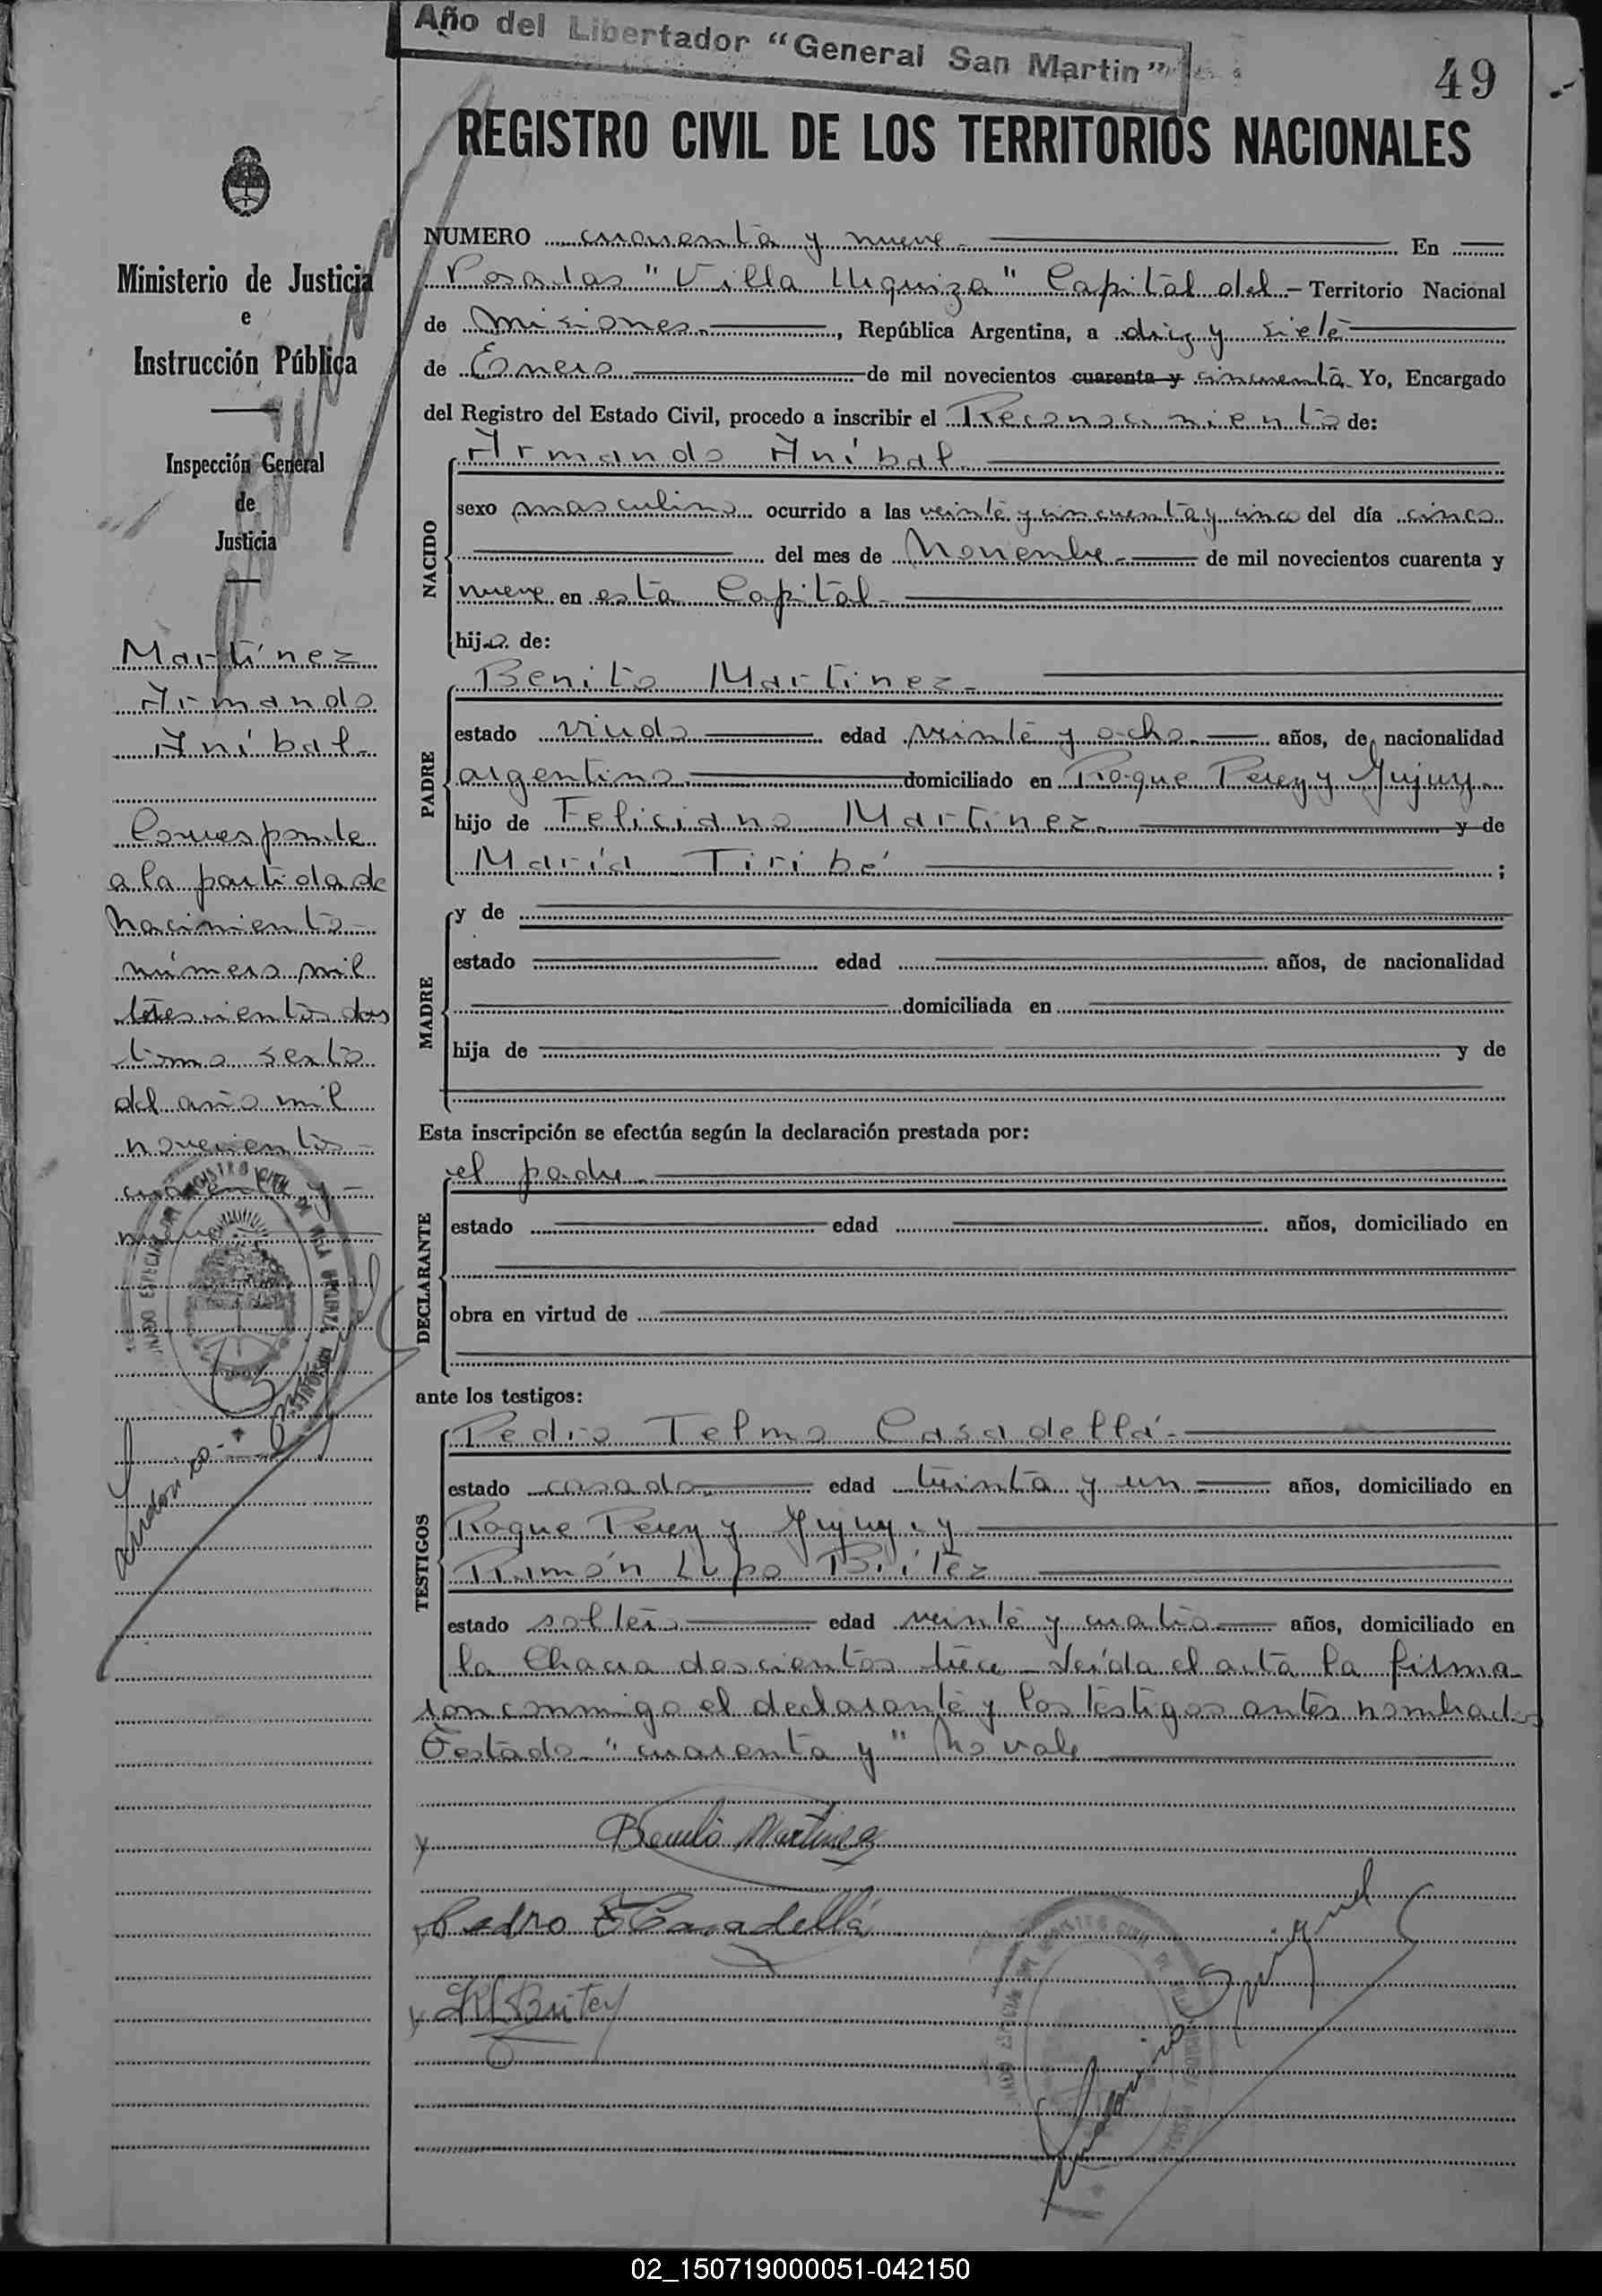 Año del Libertador "General San Martin"
49
REGISTRO CIVIL DE LOS TERRITORIOS NACIONALES
NUMERO cuarenta y nueve En
Posadas "Villa Urquiza" Capital del Territorio Nacional
de Misiones, República Argentina, a diez y siete
de Enero de mil novecientos cuarenta y cincuenta Yo, Encargado
del Registro del Estado Civil, procedo a inscribir el Reconocimiento de:
NACIDO
Armando Aníbal
sexo masculino ocurrido a las veinte y cincuenta y cinco del día cinco
del mes de Noviembre de mil novecientos cuarenta y
nueve en esta Capital
hijo de:
PADRE
Benito Martinez
estado viudo edad veinte y ocho años, de nacionalidad
argentino domiciliado en Roque Perez y Jujuy
hijo de Feliciano Martinez y de
María Tiribé ;
MADRE
y de
estado edad años, de nacionalidad
domiciliada en
hija de y de
Esta inscripción se efectúa según la declaración prestada por:
DECLARANTE
el padre
estado edad años, domiciliado en
obra en virtud de
ante los testigos:
TESTIGOS
Pedro Telmo Casadellá
estado casado edad treinta y un años, domiciliado en
Roque Perez y Jujuy, y
Ramón Lupo Britez
estado soltero edad veinte y cuatro años, domiciliado en
la Chacra doscientos trece Leída el acta la firma
ron conmigo el declarante y los testigos antes nombrados
Testado "cuarenta y" No vale
Benito Martinez
Pedro T Casadellá
Britez
Ministerio de Justicia
e
Instrucción Pública
Inspección General
de
Justicia
Martínez
Armando
Aníbal
Corresponde
a la partida de
Nacimiento
número mil
del año mil
novecientos
cuarenta y
nueve
02_150719000051-042150